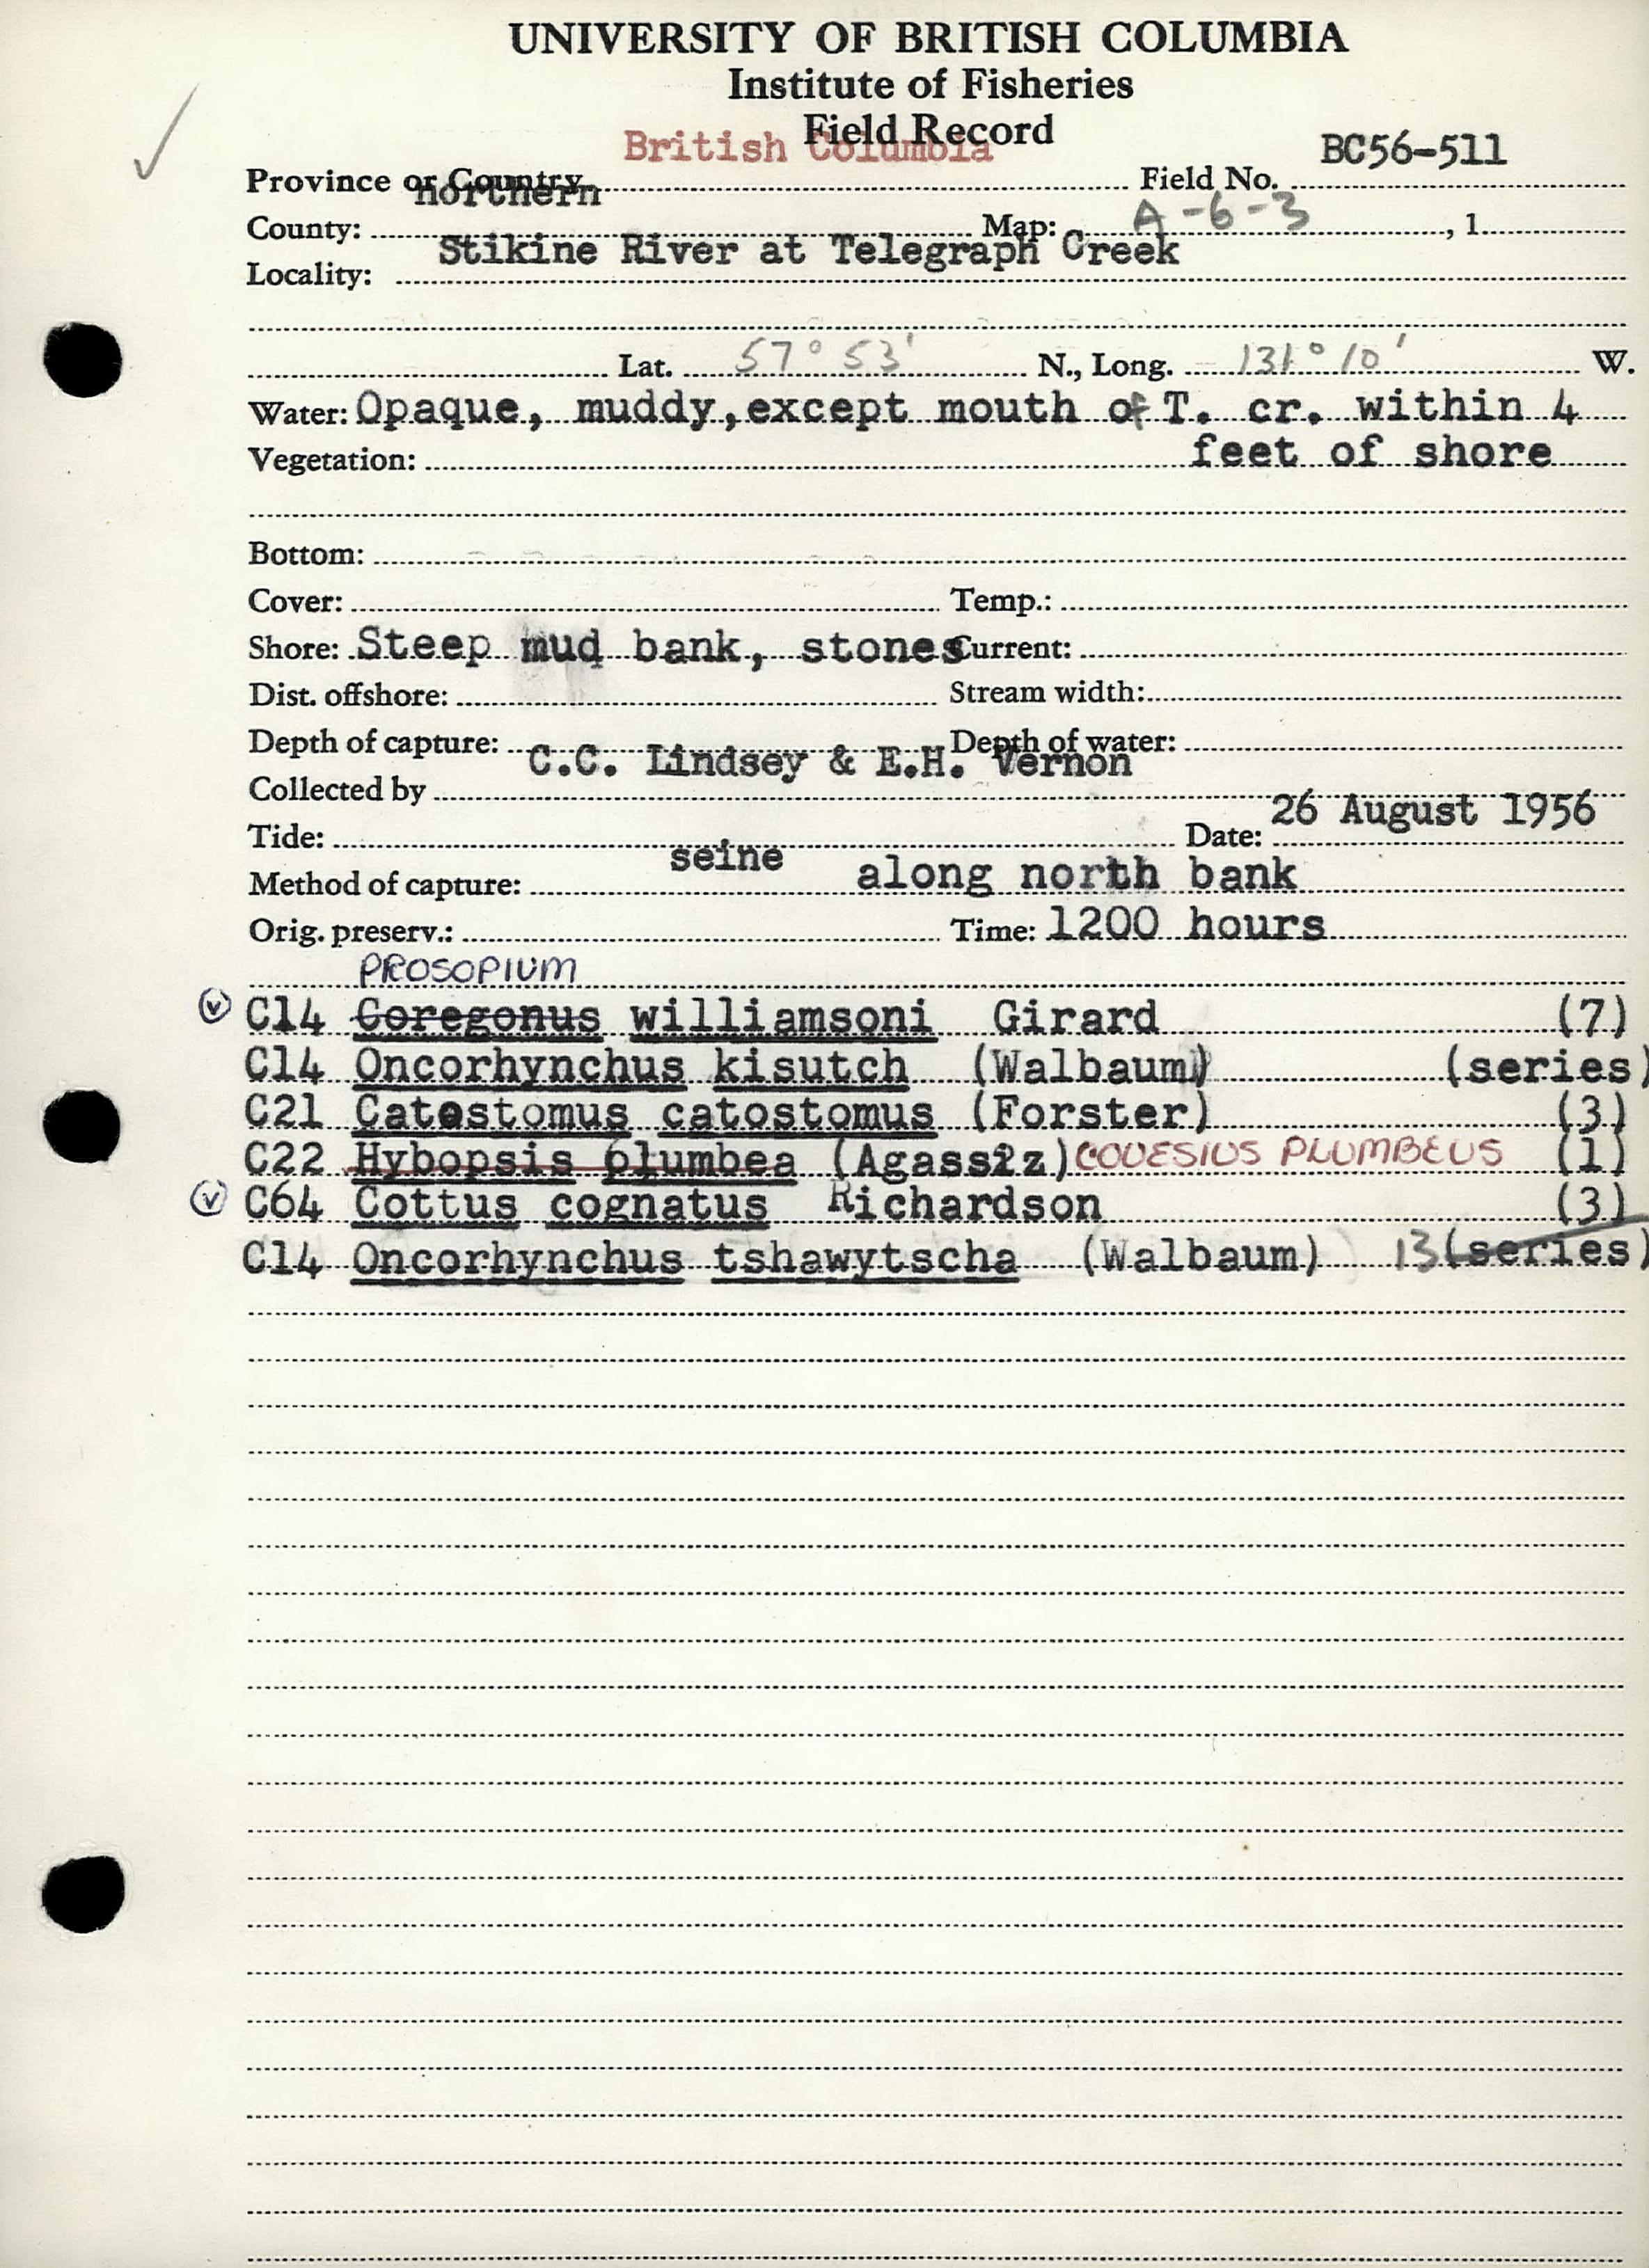 UNIVERSITY OF BRITISH COLUMBIA
Institute of Fisheries
Field Record
British Columbia
BC56-511
Province or Country Field No.
northern
County: Map: A-6-3 , 1.
Stikine River at Telegraph Creek
Locality:
Lat. 57° 53' N., Long. 131° 10' W.
Water: Opaque, muddy, except mouth of T. cr. within 4
Vegetation: feet of shore
Bottom:
Cover: Temp.:
Shore: Steep mud bank, stones Current:
Dist. offshore: Stream width:
Depth of capture: Depth of water:
C.C. Lindsey & E.H. Vernon
Collected by
26 August 1956
Tide: Date:
seine along north bank
Method of capture:
Orig. preserv.: Time: 1200 hours
PROSOPIUM
v C14 Coregonus williamsoni Girard (7)
C14 Oncorhynchus kisutch (Walbaum) (series)
C21 Catostomus catostomus (Forster) (3)
C22 Hybopsis plumbea (Agassiz) COUESIUS PLUMBEUS (1)
v C64 Cottus cognatus Richardson (3)
C14 Oncorhynchus tshawytscha (Walbaum) 13 (series)